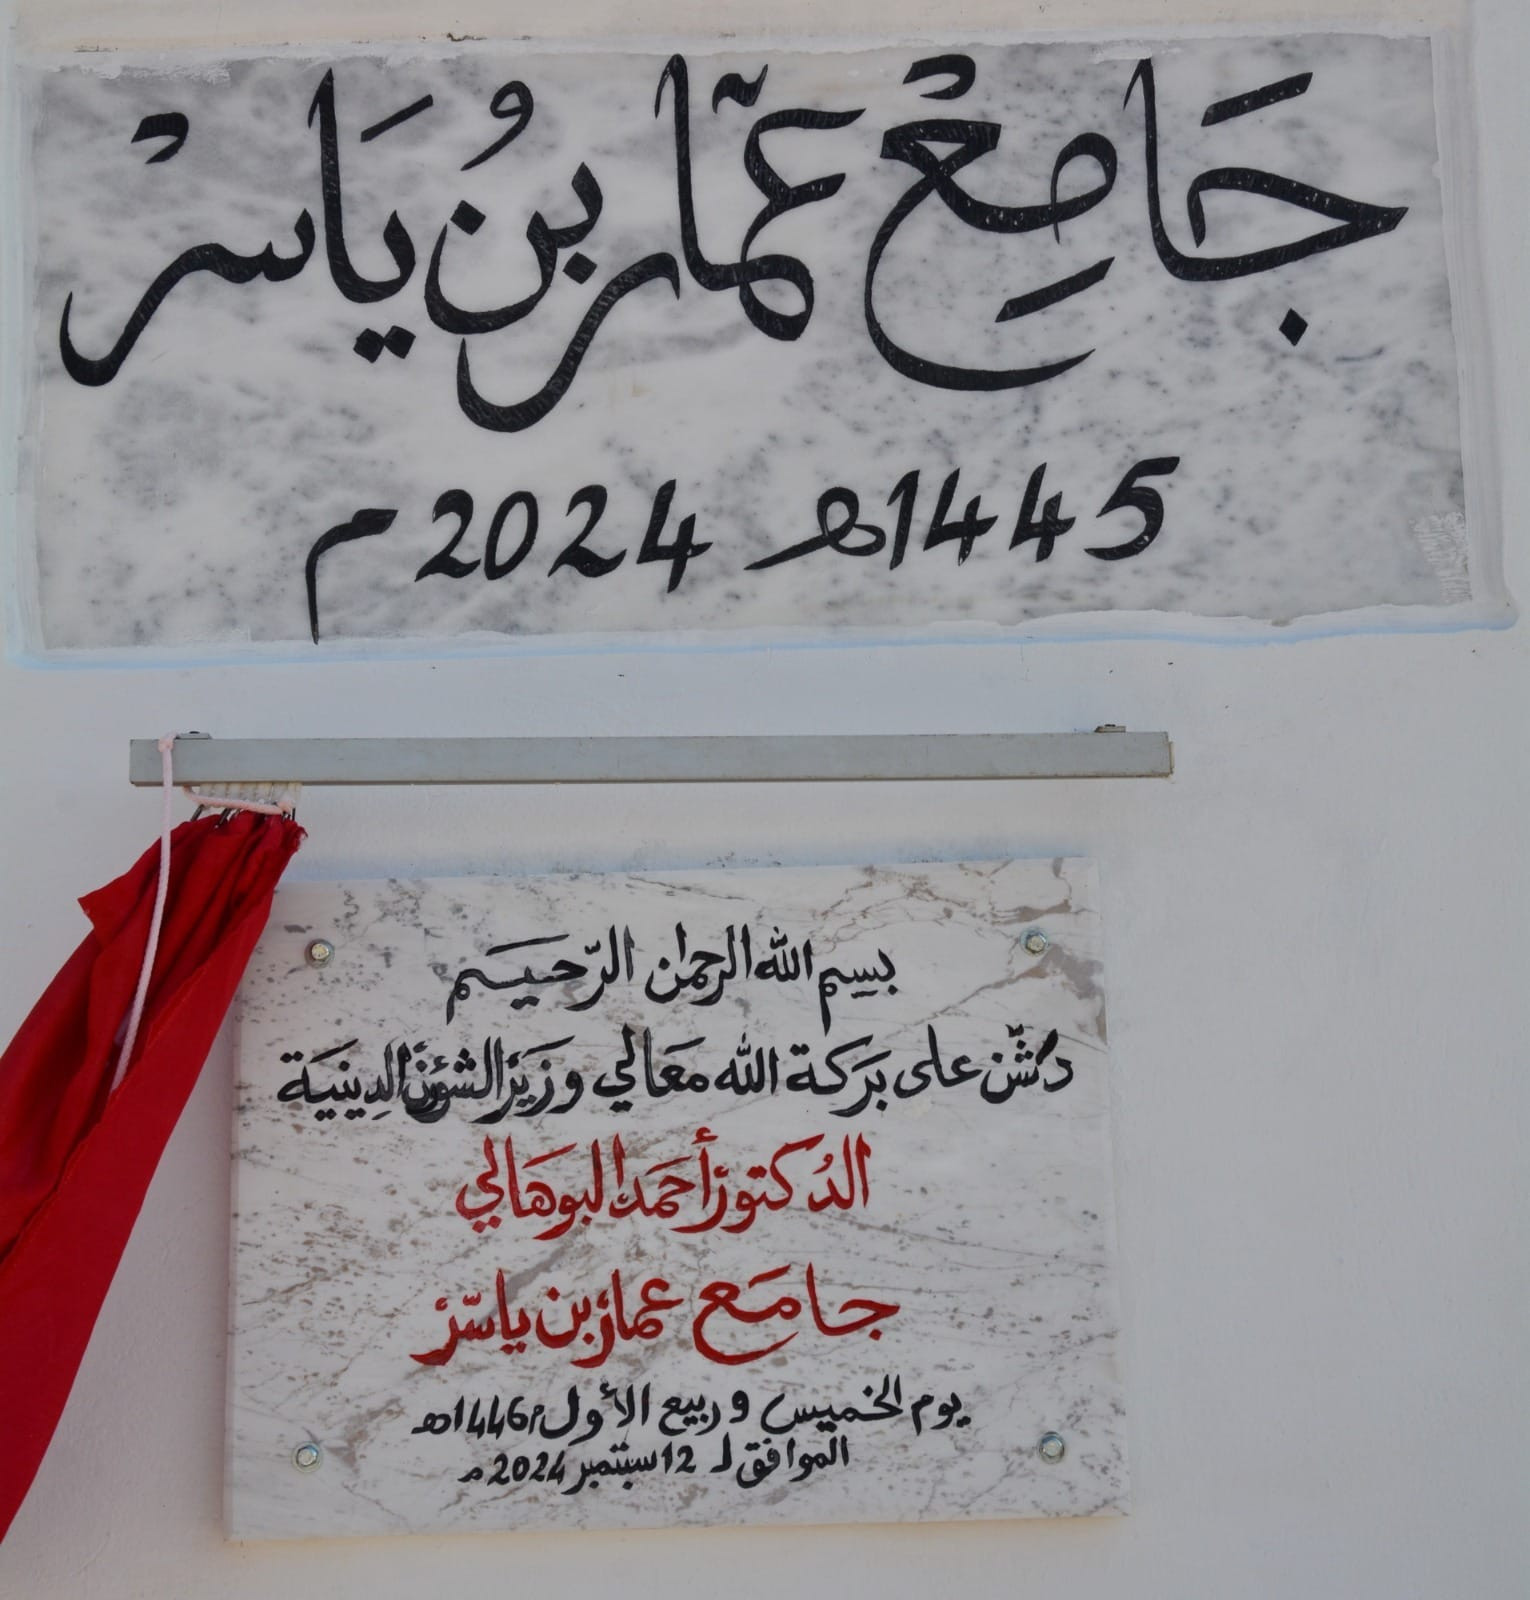 جَامِعْ عمّار بنُ يَاسرْ
1445هـ 2024 م
بسم الله الرحمان الرّحيم
دشّن على بَركة الله مَعَالي وزَير الشؤون الدِينيَة
الدُكتور أحمَد البوهَالي
جامَع عمار بن ياسّر
يوم الخميس 9 ربيع الأول 1446هـ
الموافق لـ 12 سبتمبر 2024 م